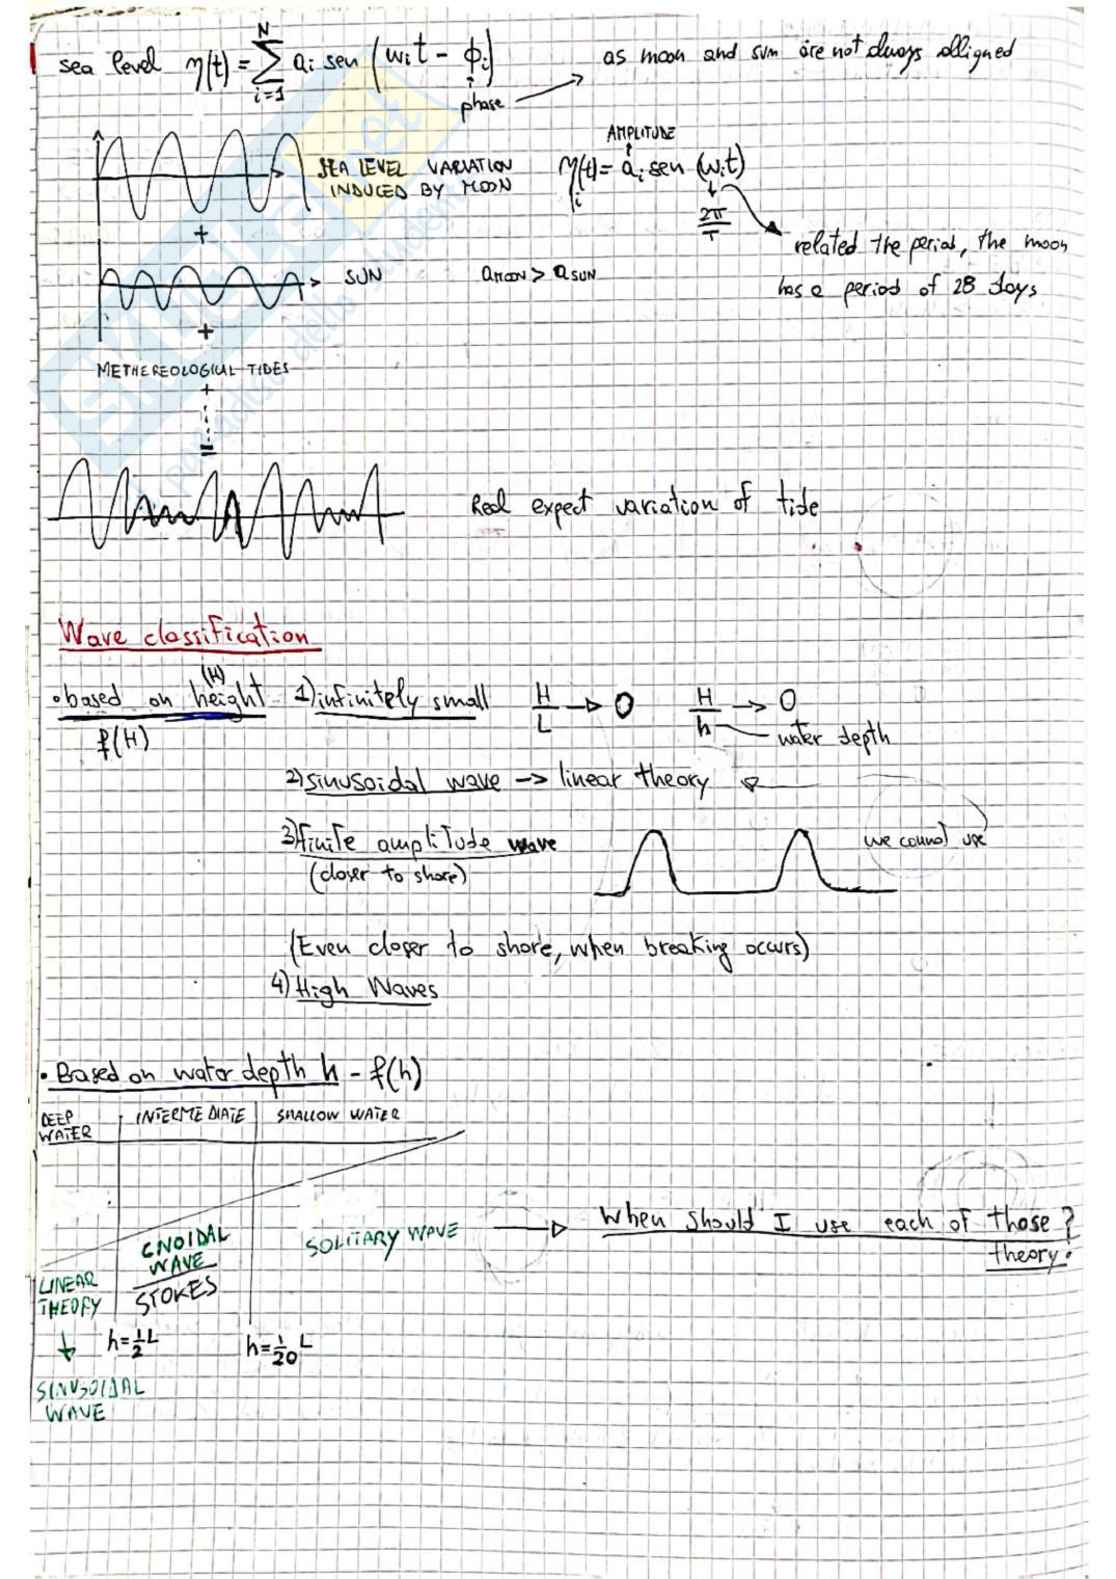 sea level η(t) = ∑ aᵢ sen (wᵢt - ϕᵢ)
N
i=1
phase
as moon and sun are not always alligned
SEA LEVEL VARIATION
INDUCED BY MOON
AMPLITUDE
ηᵢ(t) = aᵢ sen (wᵢt)
2π/T
related the period, the moon
has a period of 28 days
+
SUN
aMOON > aSUN
+
METHEREOLOGICAL TIDES
+
=
Real expect variation of tide
Wave classification
• based on height (H)
f(H)
1) infinitely small H/L → 0 H/h → 0
water depth
2) sinusoidal wave → linear theory
3) finite amplitude wave
(closer to shore)
we cannot use
(Even closer to shore, when breaking occurs)
4) High Waves
• Based on water depth h - f(h)
DEEP WATER
INTERMEDIATE
SHALLOW WATER
LINEAR
THEORY
CNOIDAL
WAVE
STOKES
SOLITARY WAVE
When should I use each of those?
theory.
h=1/2 L
h=1/20 L
SINUSOIDAL
WAVE